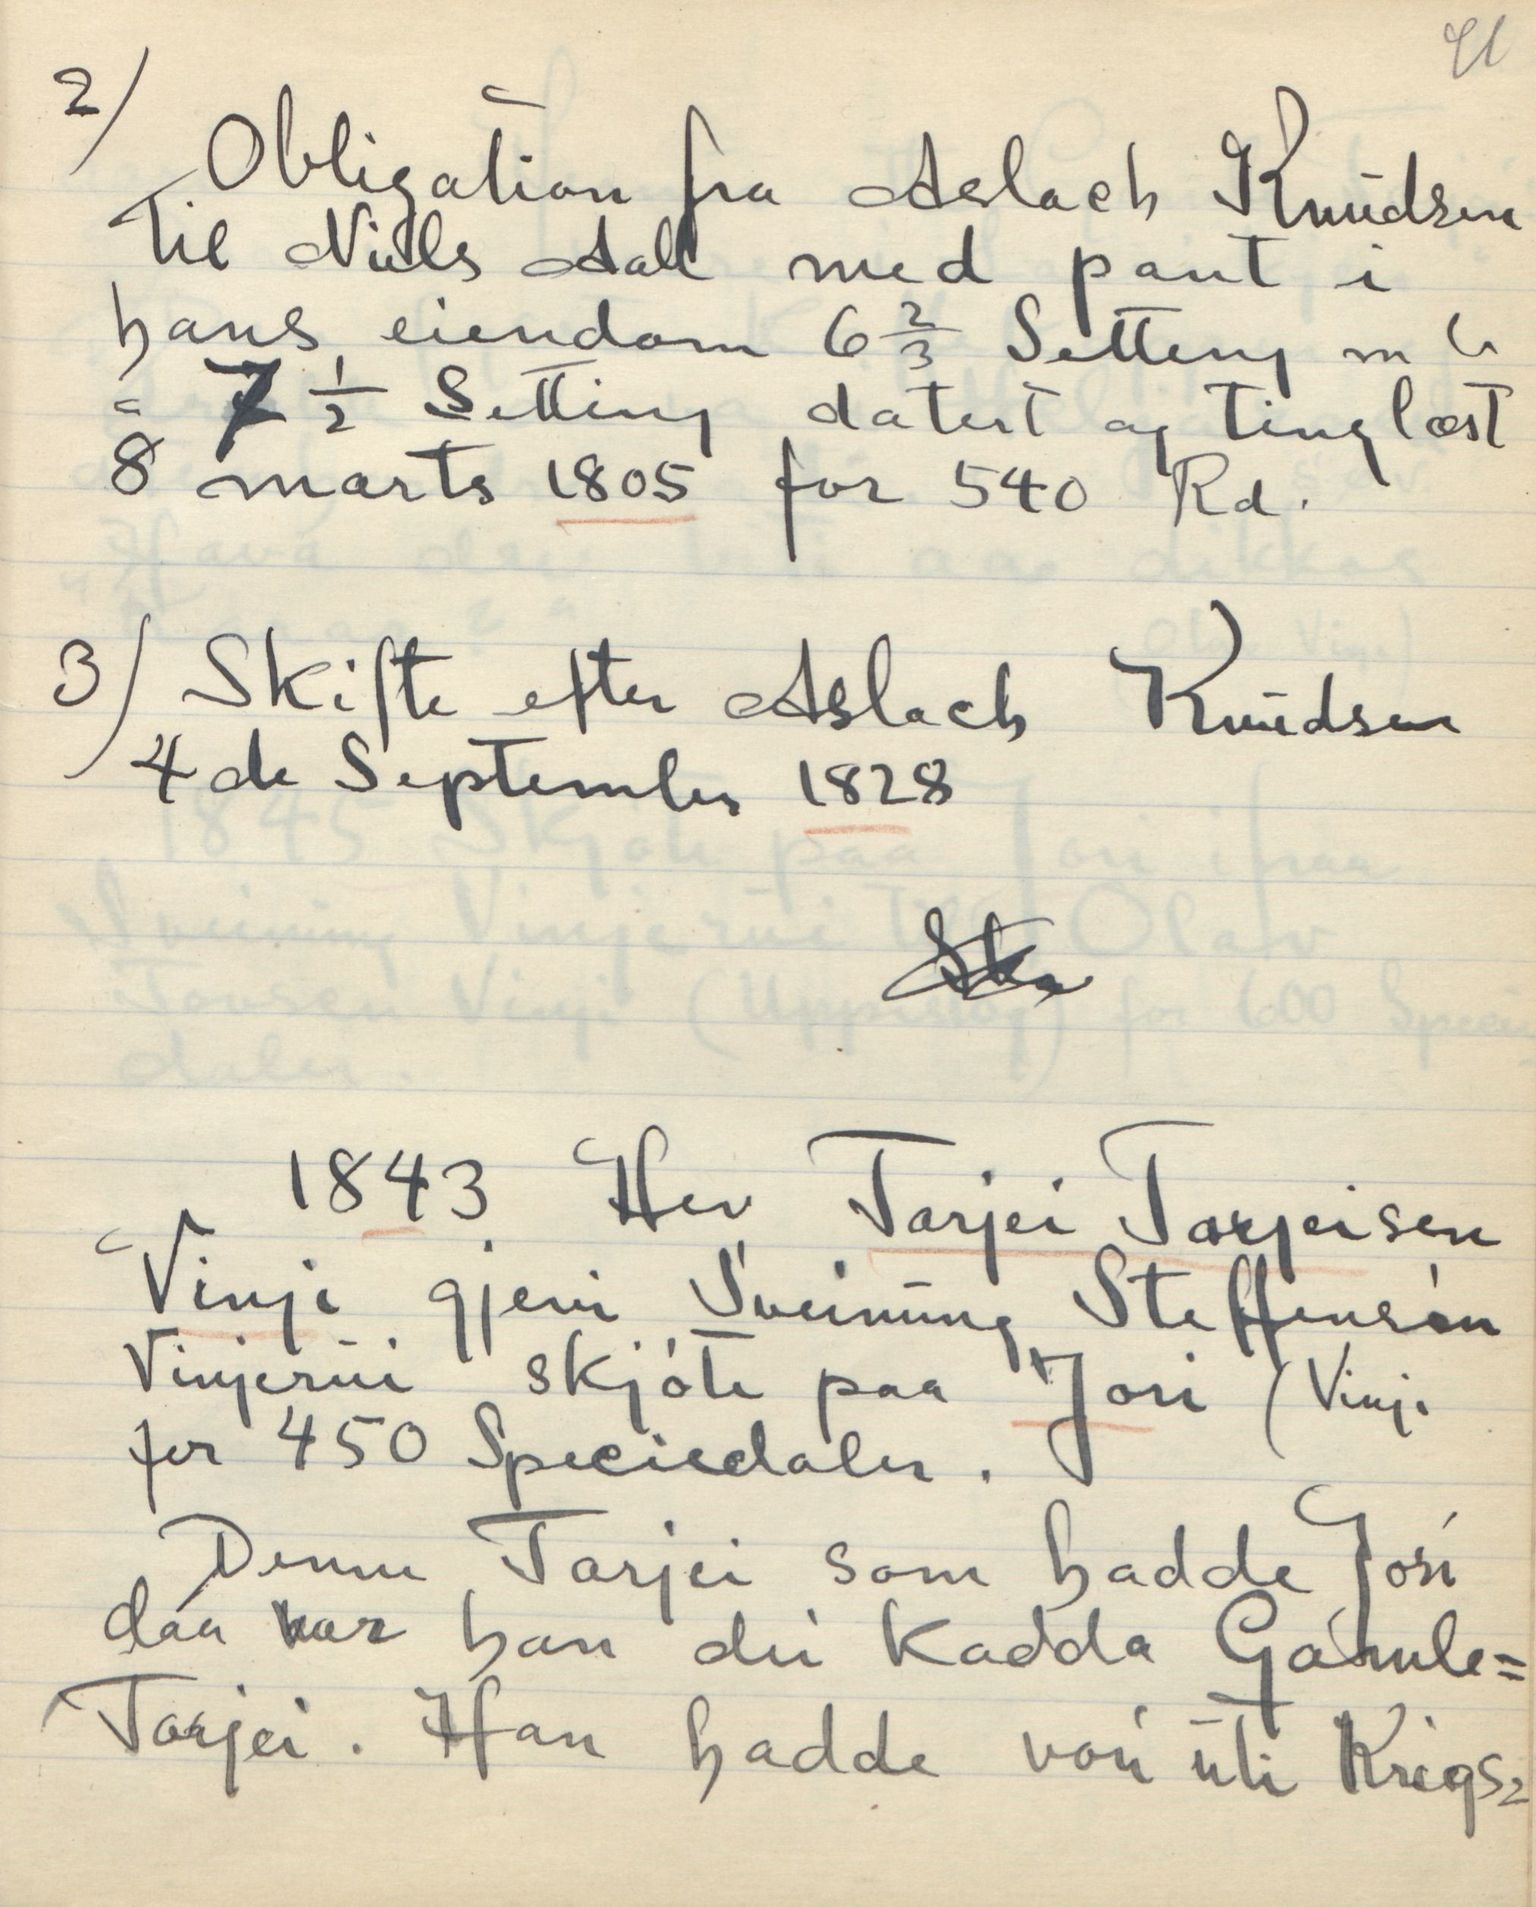 91
2/
Obligation fra Aslach Knudsen
til Niels Aall med pant i
hans eiendom 6 2/3 Setting m
a 7 1/2 Setting datert og tinglæst
8 marts 1805 for 540 Rd.
3/ Skifte efter Aslach Knudsen
4de September 1828
1843 Hev Tarjei Tarjeisen
Vinje gjevi Sveinung Steffenson
Vinjerui skjóte paa Jori (Vinje
for 450 Speciedaler.
Denne Tarjei som hadde Jori
daa var han dei kadda Gámle=
Tarjei. Han hadde vori uti Krigs=